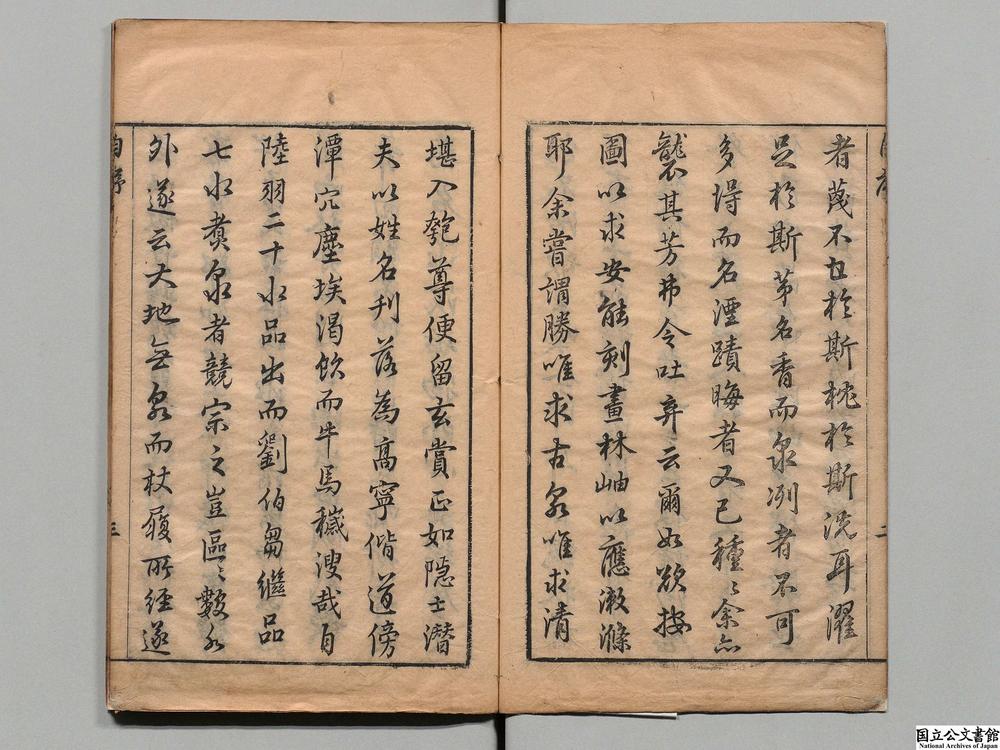 自序
二
者蔑不於斯枕於斯洗耳濯
足於斯第名香而泉冽者不可
多得而名湮蹟晦者又已種〻余亦
襲其芳弗令吐弃云爾如欲按
圖以求安能刻畫林岫以應漱滌
耶余嘗謂勝唯求古泉唯求清
堪入匏尊便留玄賞正如隱士潛
夫以姓名刊落為高寧偕道傍
潭穴塵埃渴飲而牛馬穢溲哉自
陸羽二十水品出而劉伯芻繼品
七水煮泉者競宗之豈區〻數水
外遂云大地無泉而杖屨所經遂
自序
三
国立公文書館
National Archives of Japan